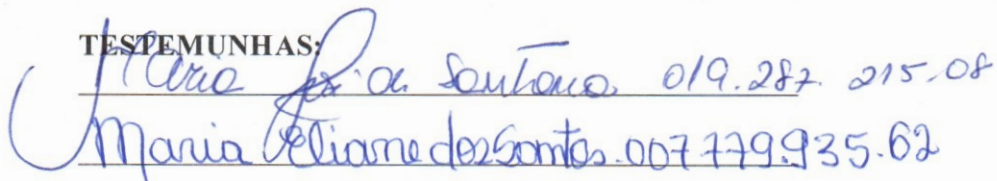 TESTEMUNHAS:
Maria José de Santana 019.287.215.08
Maria Eliane dos Santos.007.779.935.62